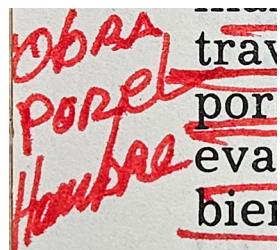 Obras
por el
Hombre
trav
por
eva
bien